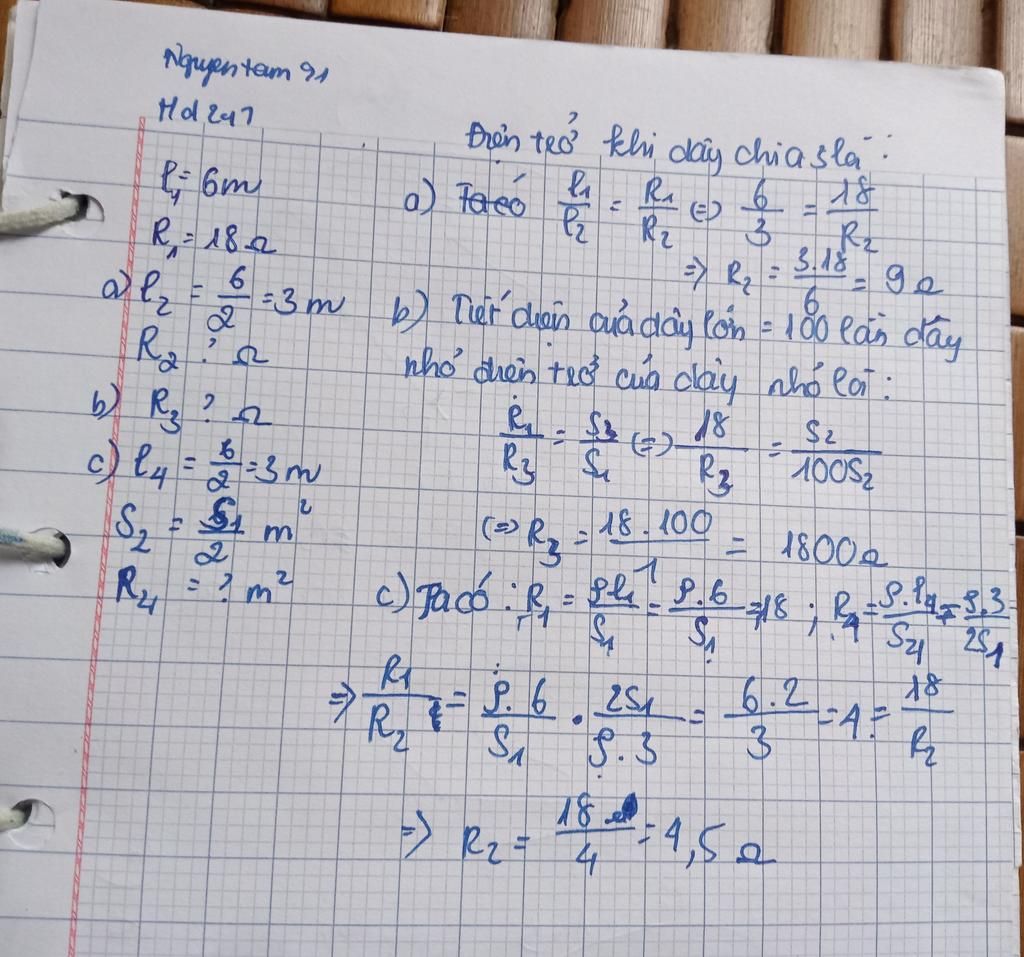 Nguyentam 91
Hd 247
l₁ = 6m
R₁ = 18Ω
a) l₂ = 6/2 = 3m
R₂ ? Ω
b) R₃ ? Ω
c) l₄ = 6/2 = 3m
S₂ = S₁/2 m²
R₄ = ? m²
Điện trở khi dây chia là :
a) Ta có l₁/l₂ = R₁/R₂ (=) 6/3 = 18/R₂
=> R₂ = 3.18/6 = 9Ω
b) Tiết diện của dây lớn = 100 lần dây
nhỏ điện trở của dây nhỏ là :
R₁/R₃ = S₃/S₁ (=) 18/R₃ = S₂/100S₂
(=> R₃ = 18.100/1 = 1800Ω
c) Ta có : R₁ = ρl₁/S₁ = ρ.6/S₁ = 18 ; R₄ = ρ.l₄/S₄ = ρ.3/2S₁
=> R₁/R₂ = ρ.6/S₁ . 2S₁/ρ.3 = 6.2/3 = 4 = 18/R₂
=> R₂ = 18/4 = 4,5Ω